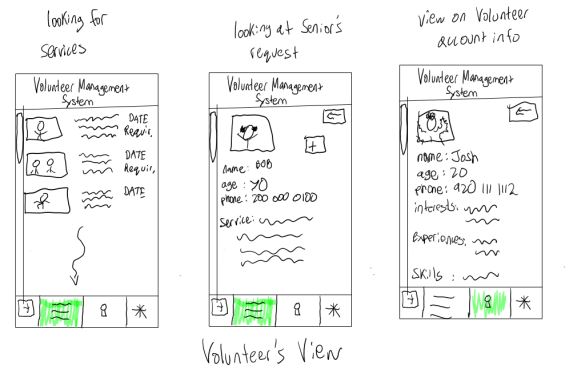 looking for
services
Volunteer Management
System
DATE
Requir.
DATE
Requir.
DATE
looking at Senior's
request
Volunteer Management
System
name: BOB
age: 70
phone: 200 000 0100
Service:
view on Volunteer
account info
Volunteer Management
System
name: Josh
age: 20
phone: 920 111 1112
interests:
Experiences:
Skills:
Volunteer's View